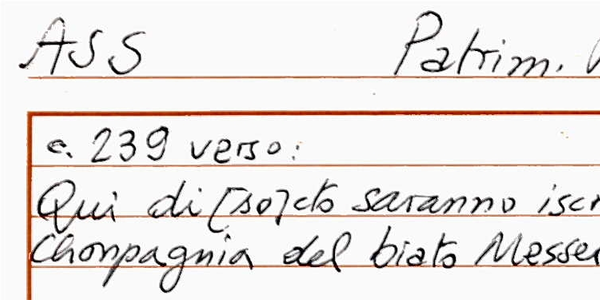 ASS Patrim.
c. 239 verso:
Qui di [so]cto saranno iscr
Chonpagnia del biato Messer